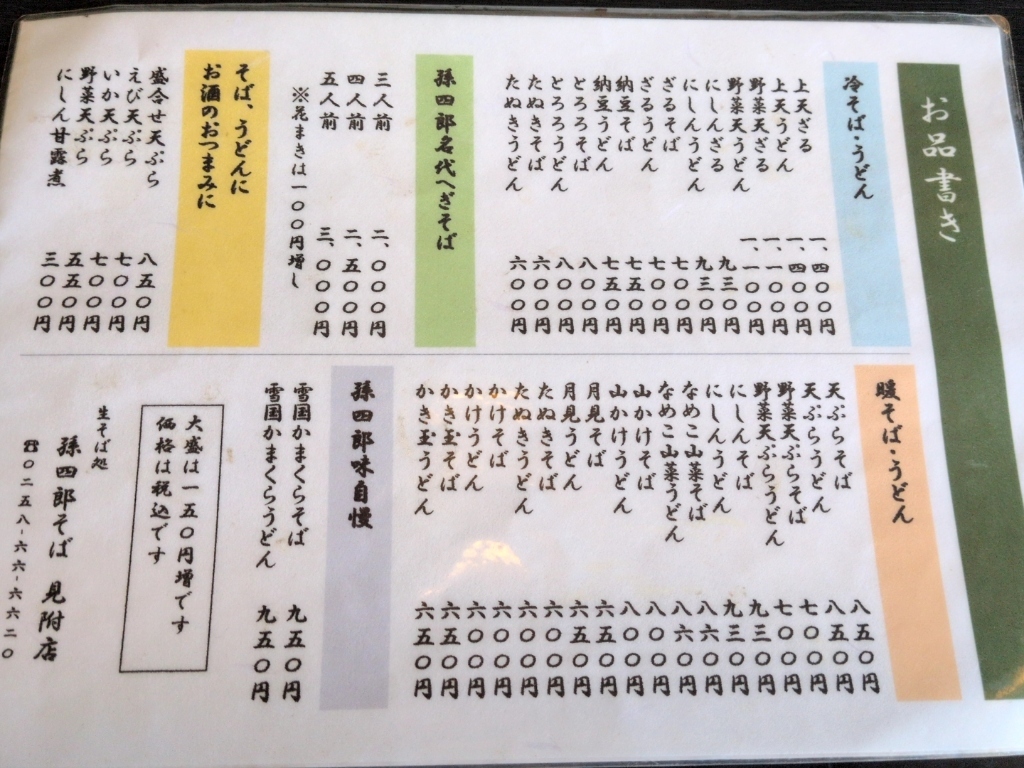 お品書き
冷そば・うどん
上天ざる 一、四〇〇円
上天うどん 一、四〇〇円
野菜天ざる 一、一〇〇円
野菜天うどん 一、一〇〇円
にしんざる 九三〇円
にしんうどん 九三〇円
ざるそば 七〇〇円
ざるうどん 七〇〇円
納豆そば 七五〇円
納豆うどん 七五〇円
とろろそば 八〇〇円
とろろうどん 八〇〇円
たぬきそば 六〇〇円
たぬきうどん 六〇〇円
孫四郎名代へぎそば
三人前 二、〇〇〇円
四人前 二、五〇〇円
五人前 三、〇〇〇円
※花まきは一〇〇円増し
そば、うどんに
お酒のおつまみに
盛合せ天ぷら 八五〇円
えび天ぷら 七〇〇円
いか天ぷら 七〇〇円
野菜天ぷら 五五〇円
にしん甘露煮 三〇〇円
暖そば・うどん
天ぷらそば 八五〇円
天ぷらうどん 八五〇円
野菜天ぷらそば 七〇〇円
野菜天ぷらうどん 七〇〇円
にしんそば 九三〇円
にしんうどん 九三〇円
なめこ山菜そば 八六〇円
なめこ山菜うどん 八六〇円
山かけそば 八〇〇円
山かけうどん 八〇〇円
月見そば 六五〇円
月見うどん 六五〇円
たぬきそば 六〇〇円
たぬきうどん 六〇〇円
かけそば 六〇〇円
かけうどん 六〇〇円
かき玉そば 六五〇円
かき玉うどん 六五〇円
孫四郎味自慢
雪国かまくらそば 九五〇円
雪国かまくらうどん 九五〇円
大盛は一五〇円増です
価格は税込です
生そば処
孫四郎そば 見附店
☎〇二五八-六六-六六二〇